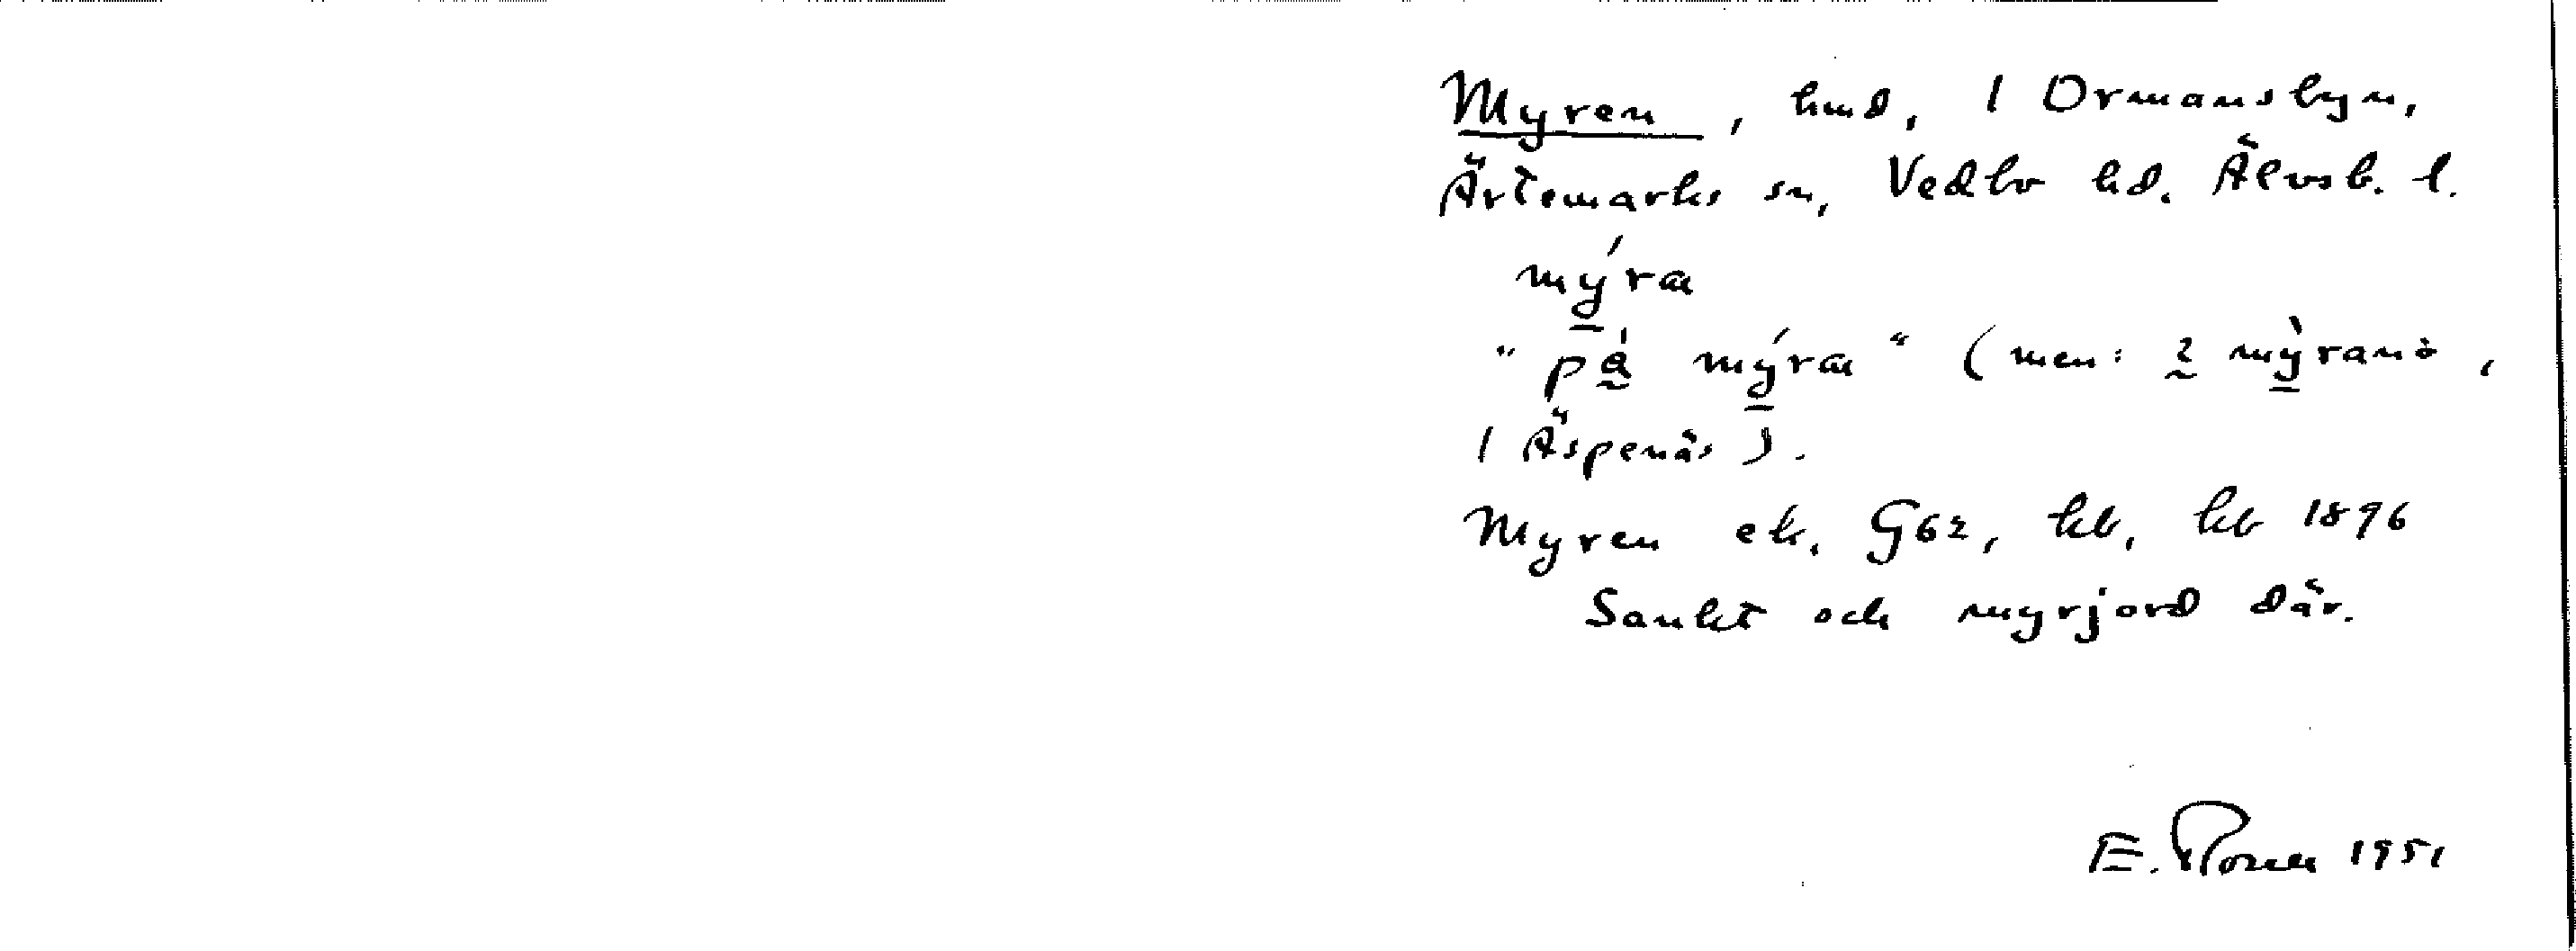 Myren, hmd, / Ormansbyn,
Ärtemarks sn, Vedbo hd. Älvsb. l.
mýræ
"på mýræ" (men: 2 mỳranȧ,
/ Äspenäs).
Myren ek. G62, kb, kb 1896
Sankt och myrjord där.
E. Rosell 1951